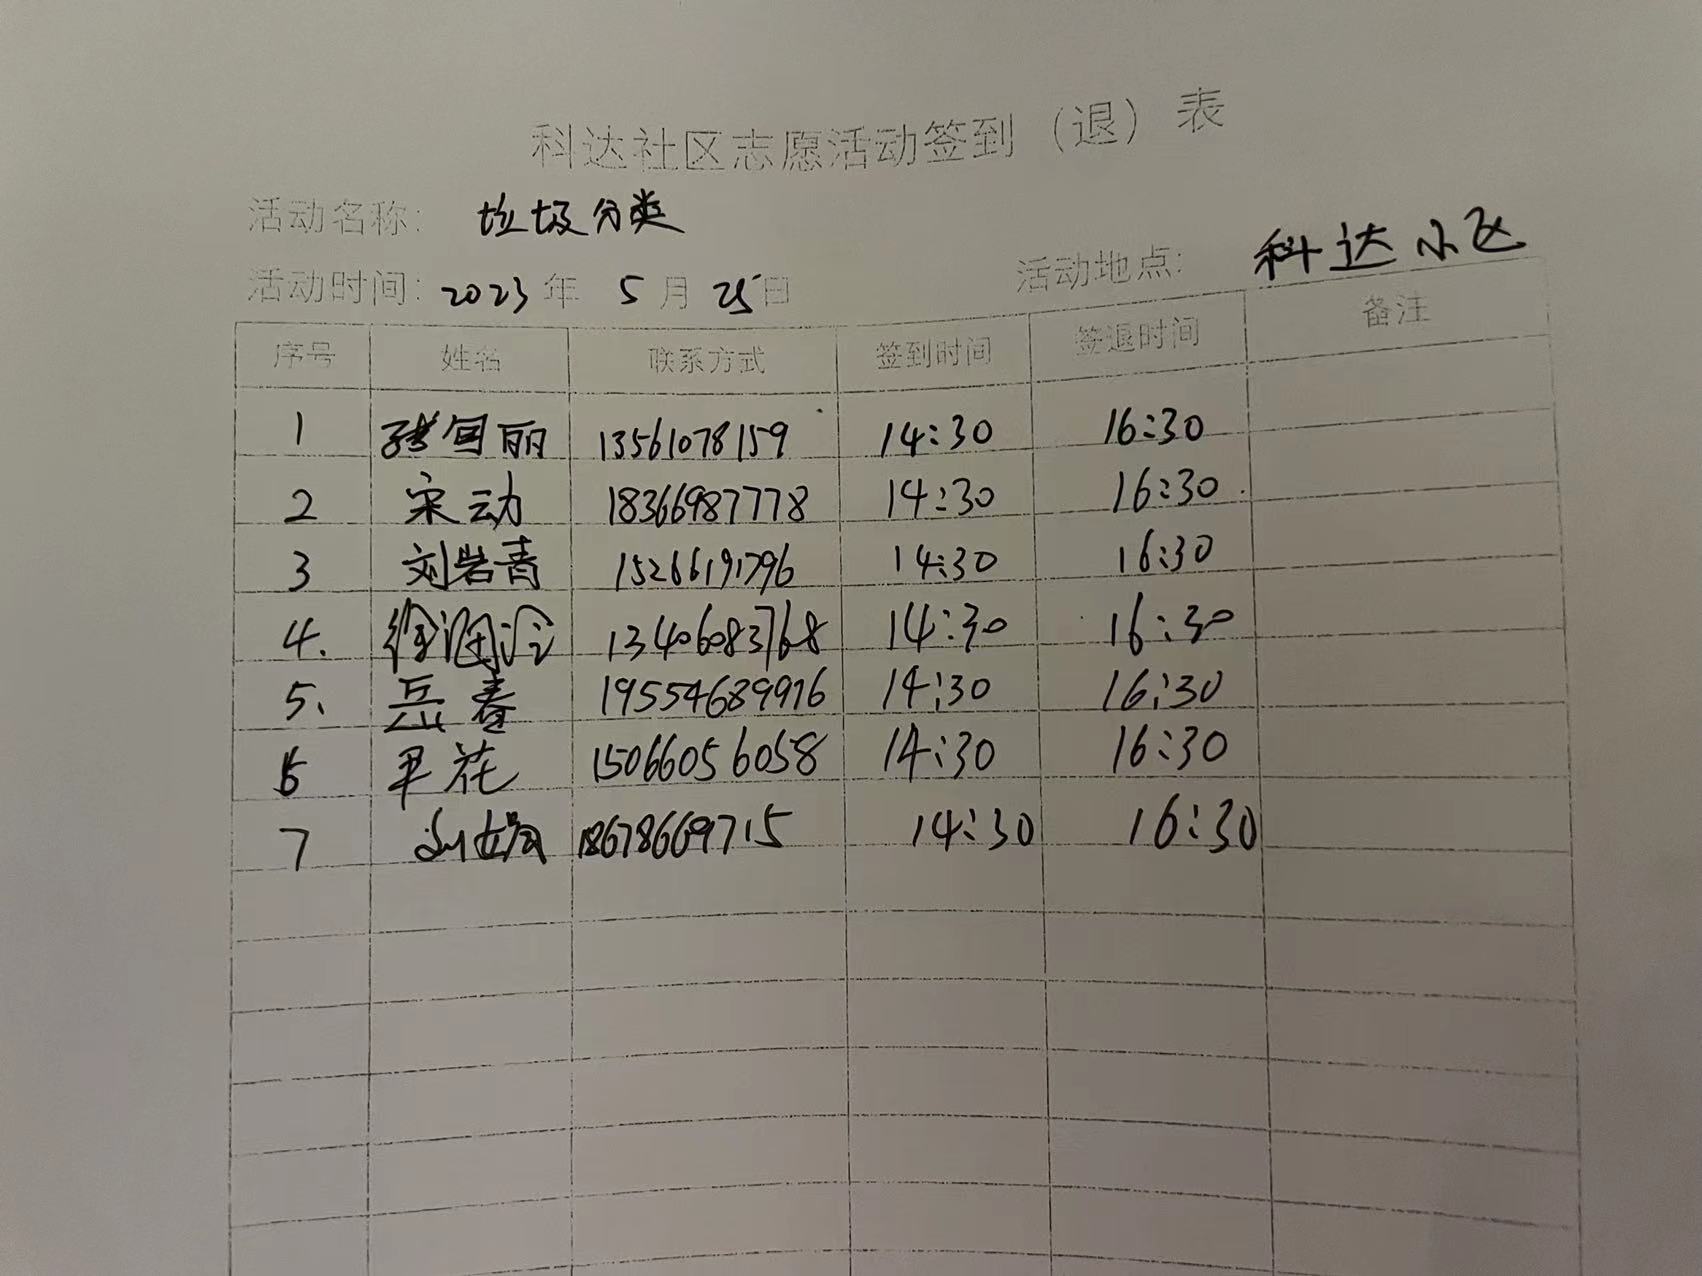 科达社区志愿活动签到（退）表
活动名称: 垃圾分类
活动时间: 2023年 5月25日 活动地点: 科达小区
序号 姓名 联系方式 签到时间 签退时间 备注
1 张国丽 13561078159 14:30 16:30
2 宋云动 18366987778 14:30 16:30
3 刘岩青 15266191796 14:30 16:30
4. 徐润泠 13406083768 14:30 16:30
5. 岳春 19554689976 14:30 16:30
6 花 15066056058 14:30 16:30
7 18678669715 14:30 16:30